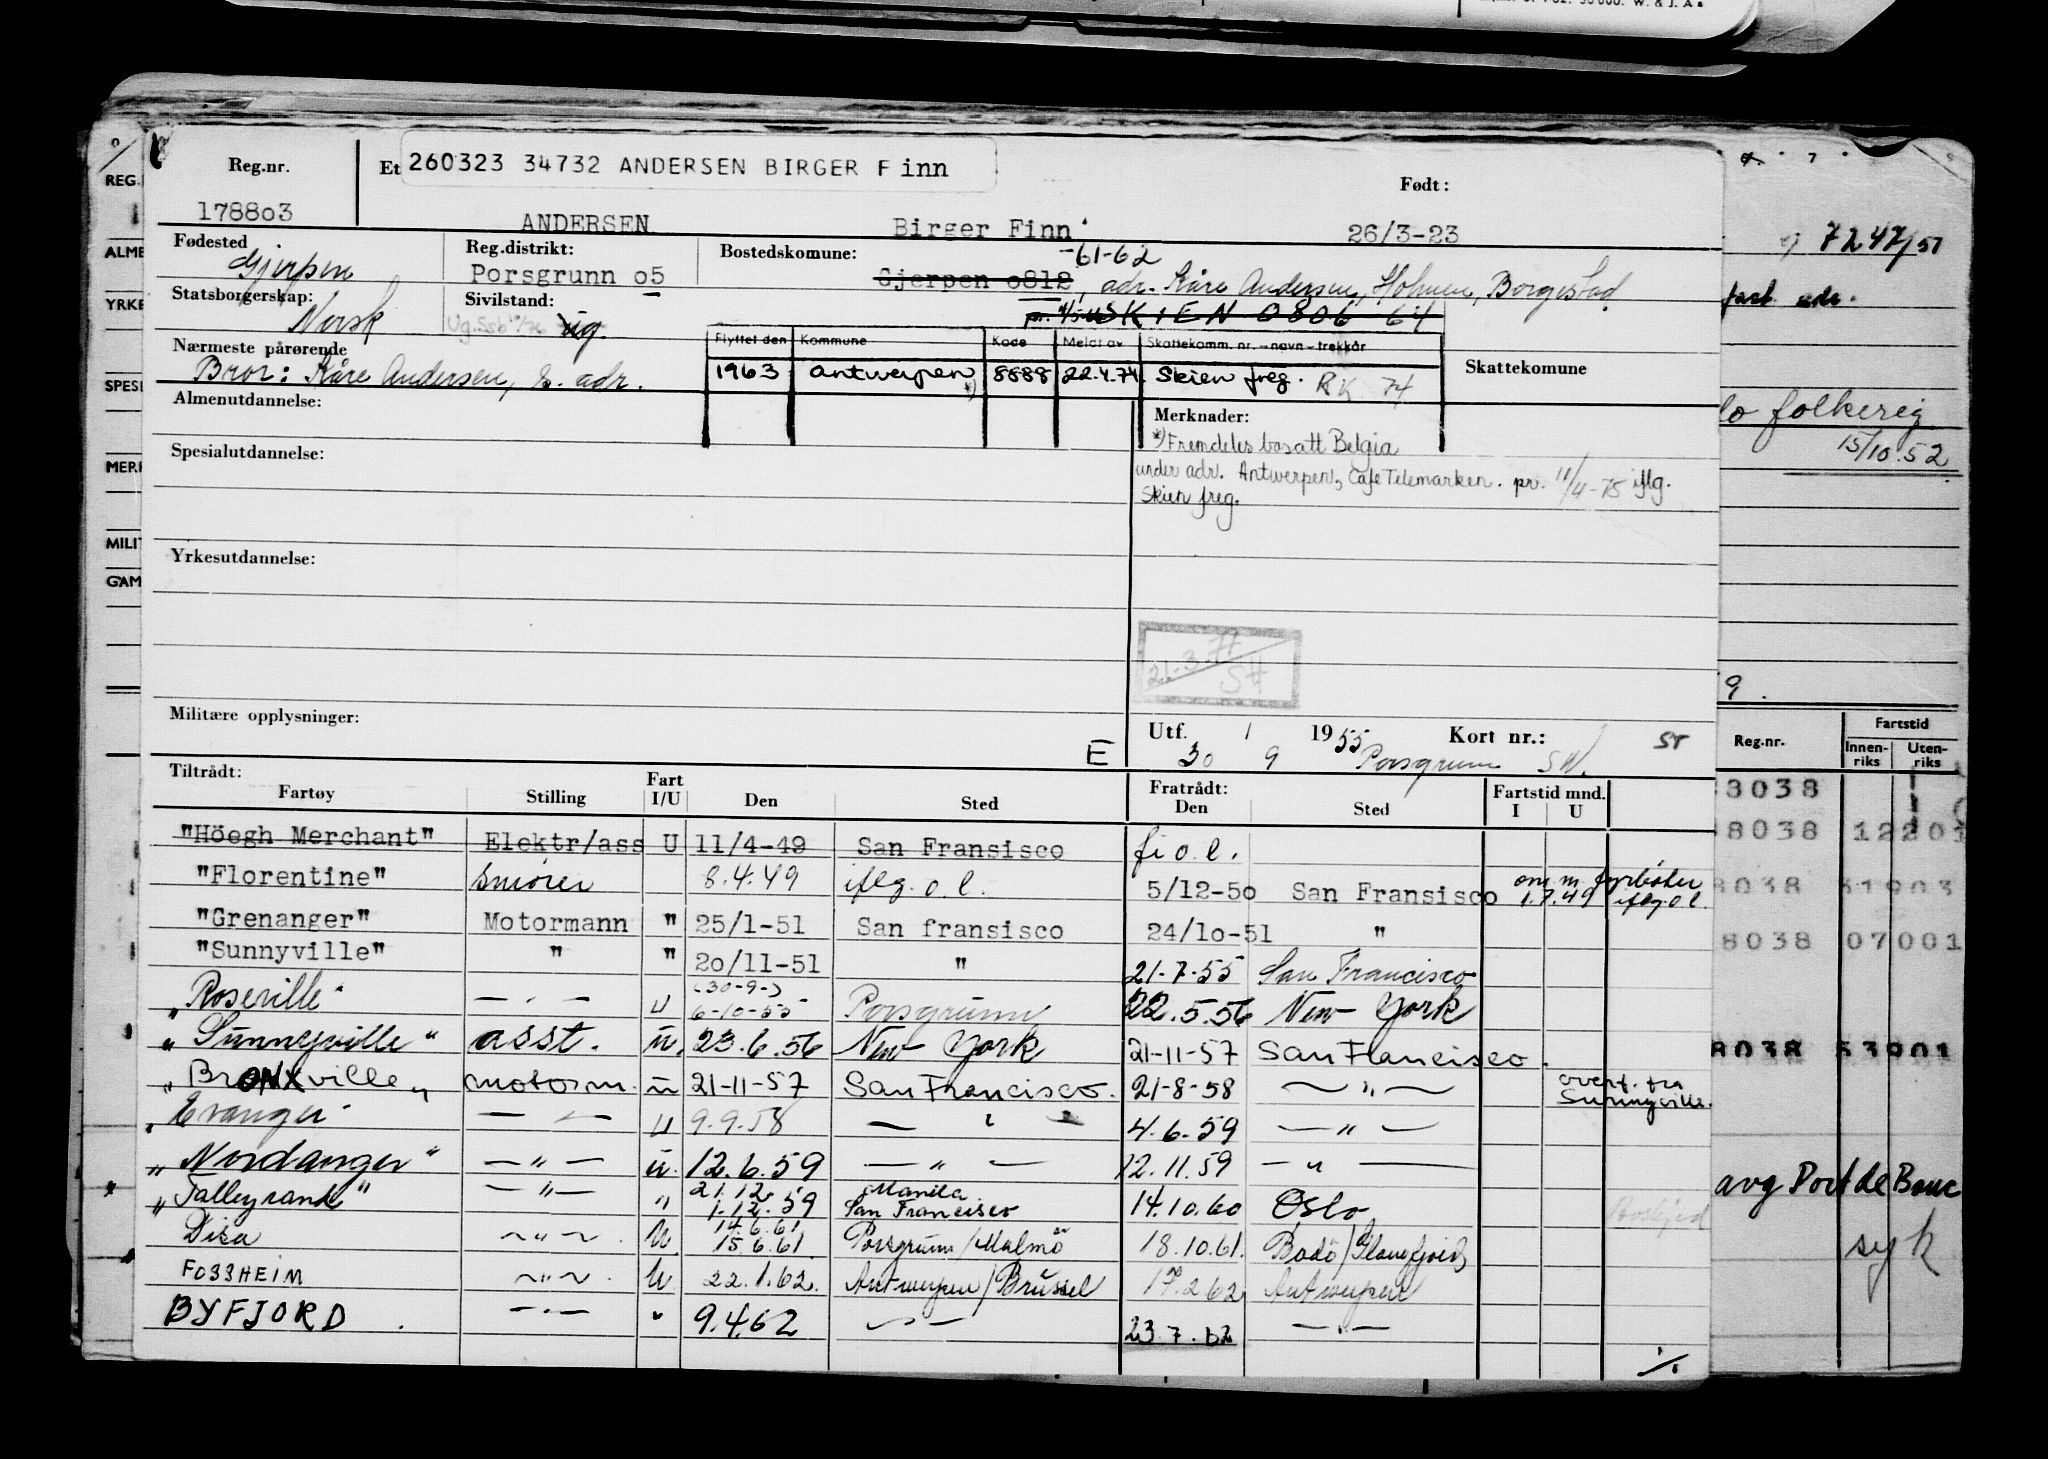 Reg.nr.
Et 260323 34732 ANDERSEN BIRGER Finn
Født:
178803 ANDERSEN Birger Finn 26/3-23
Fødested Reg.distrikt: Bostedskomune: -61-62
Gjerpen Porsgrunn o5 Gjerpen o812, adr. Kåre Andersen, Holmen, Borgestad
Statsborgerskap: Sivilstand:
Norsk ug. SKIEN 0806 64
Flyttet den Kommune Kode Meldt av Skattekomm. nr. - navn - trekkår
Nærmeste pårørende Skattekomune
Bror: Kåre Andersen, s. adr. 1963 Antwerpen *) 8888 22.4.74. Skien freg. RK 74
Almenutdannelse: Merknader:
*) Fremdeles bosatt Belgia
under adr. Antwerpen, Cafe Telemarken. pr. 11/4-75 iflg.
Skien freg.
Spesialutdannelse:
Yrkesutdannelse:
21.3.77
SH
Militære opplysninger:
E Utf. 30/9 1955 Porsgrunn Kort nr.:
Tiltrådt: Fart Fratrådt: Fartstid mnd.
Fartøy Stilling I/U Den Sted Den Sted I U
"Höegh Merchant" Elektr/ass U 11/4-49 San Fransisco fi o.l.
"Florentine" Smører 8.4.49 iflg. o.l. 5/12-5o San Fransisco om m. fyrbøter 1.7.49 iflg. o.l.
"Grenanger" Motormann " 25/1-51 San fransisco 24/1o-51 "
"Sunnyville" " " 2o/11-51 " 21-7-55 San Francisco
"Roseville" - " - U (30-9-) 6-10-55 Porsgrunn 22.5.56 New York
"Sunnyville" asst. u. 23.6.56 New York 21-11-57 San Francisco.
"Bronxville" motorm. u 21-11-57 San Francisco. 21-8-58 - " - overf. fra Sunnyville.
"Evanger" - " - U 9.9.58 - " - 4.6.59 - " -
"Nordanger" - " - u. 12.6.59 - " - 12.11.59 - " -
"Talleyrand" - " - " 21.12. 1.12.59 Manila San Francisco 14.10.60 Oslo
Disa - " - U 14.6.61 15.6.61. Porsgrunn/Malmö 18.10.61. Bodö/Glomfjord
FOSSHEIM - " - U 22.1.62. Antwerpen/Brüssel 17.2.62 Antwerpen
BYFJORD - " - " 9.4.62 - " - 23.7.62 - " -
REG.
ALME
YRKE
SPESI
MER.
MILIT
GAM
7247/51
fork. adr.
folkereg
15/10.52
Reg.nr. Fartstid
Innen-riks Uten-riks
3038
8038 12201
8038 31903
8038 07001
8038 53901
avg Port de Bouc
syk